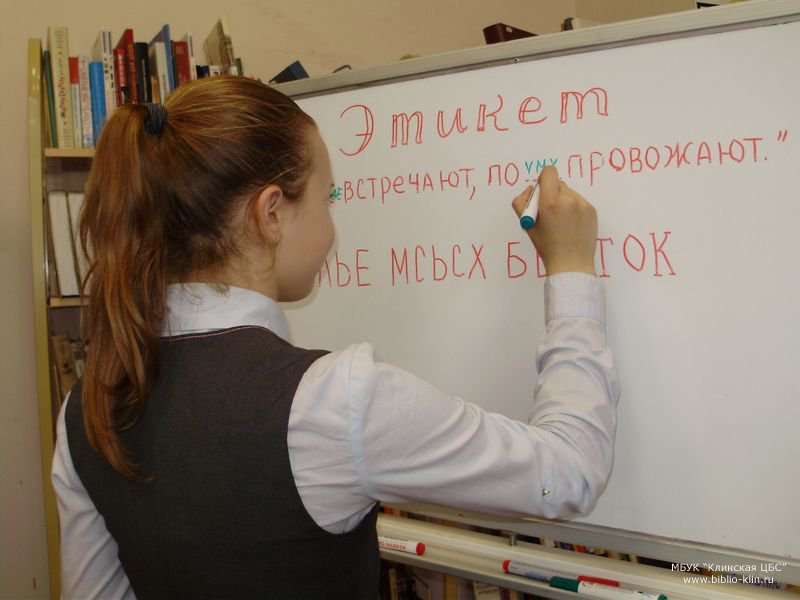 Этикет
встречают, по уму провожают."
ЛЬЕ МСЬСХ
ТОК
МБУК "Клинская ЦБС"
www.biblio-klin.ru